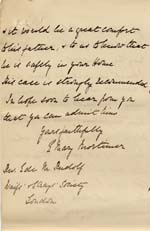 & it would be a great comfort
to his father, & to us to know that
he is safely in your Home
His case is strongly recommended
In hope soon to hear from you
that you can admit him
Yours faithfully
I Mary Mortimer
Rev. Edw. M. Rudolf
Waifs & Strays Society
London